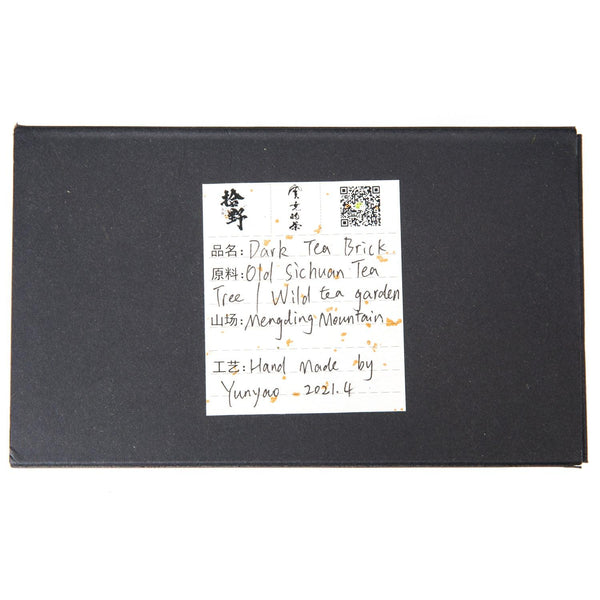 拾野
品名: Dark Tea Brick
原料: Old Sichuan Tea
Tree / Wild tea garden
山场: Mengding Mountain
工艺: Hand Made by
Yunyao 2021.4